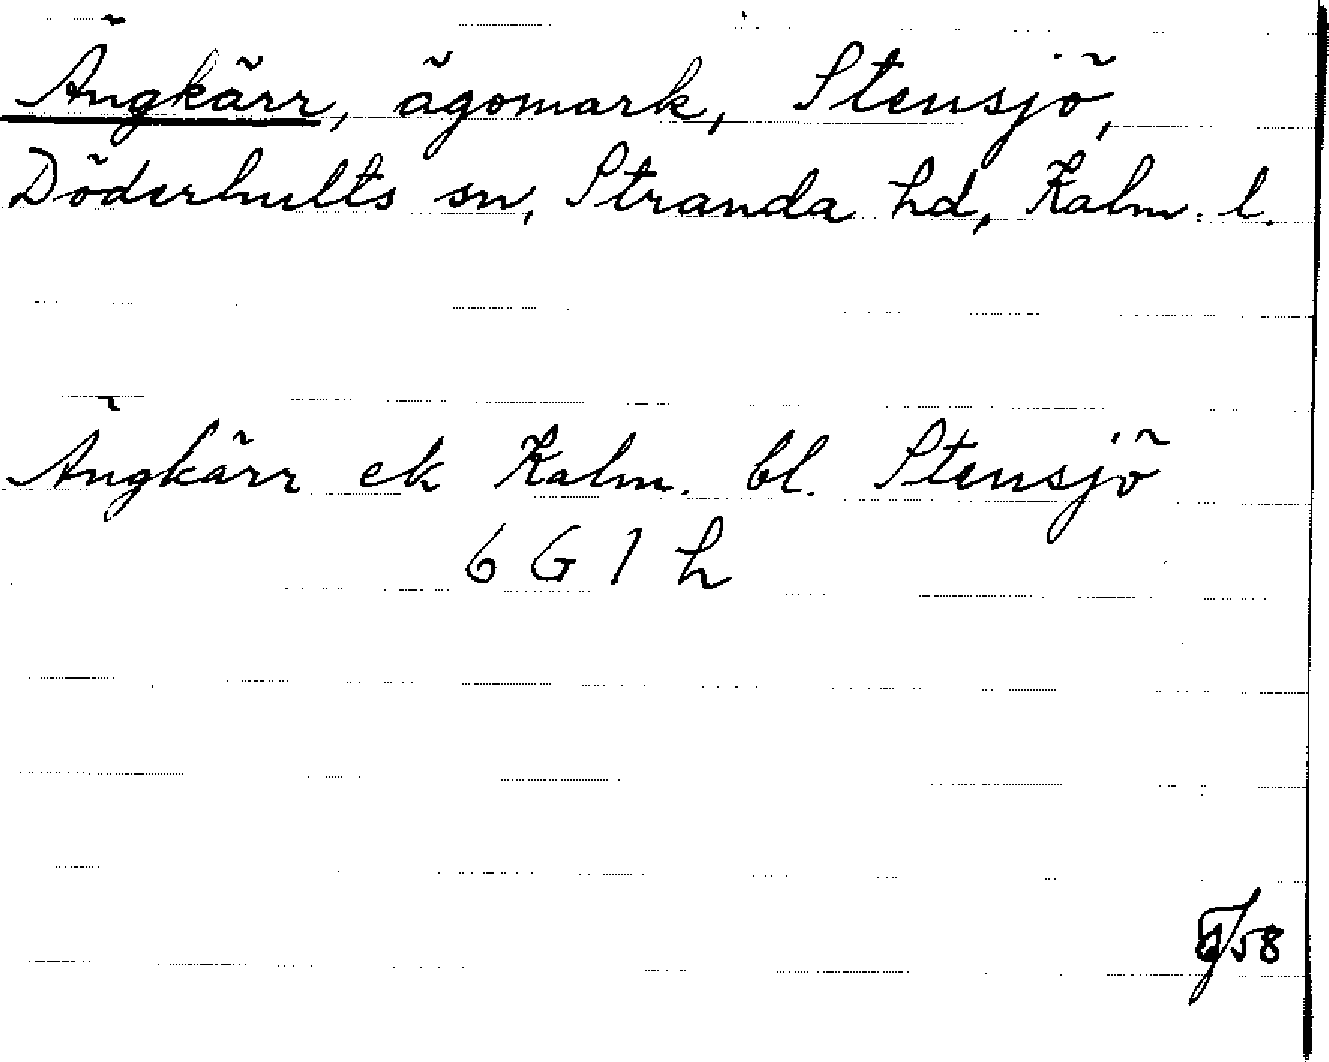 Ängkärr, ägomark, Stensjö,
Döderhults sn, Stranda hd, Kalm. l.
Ängkärr ek Kalm. bl. Stensjö
6 G 1 h
/58